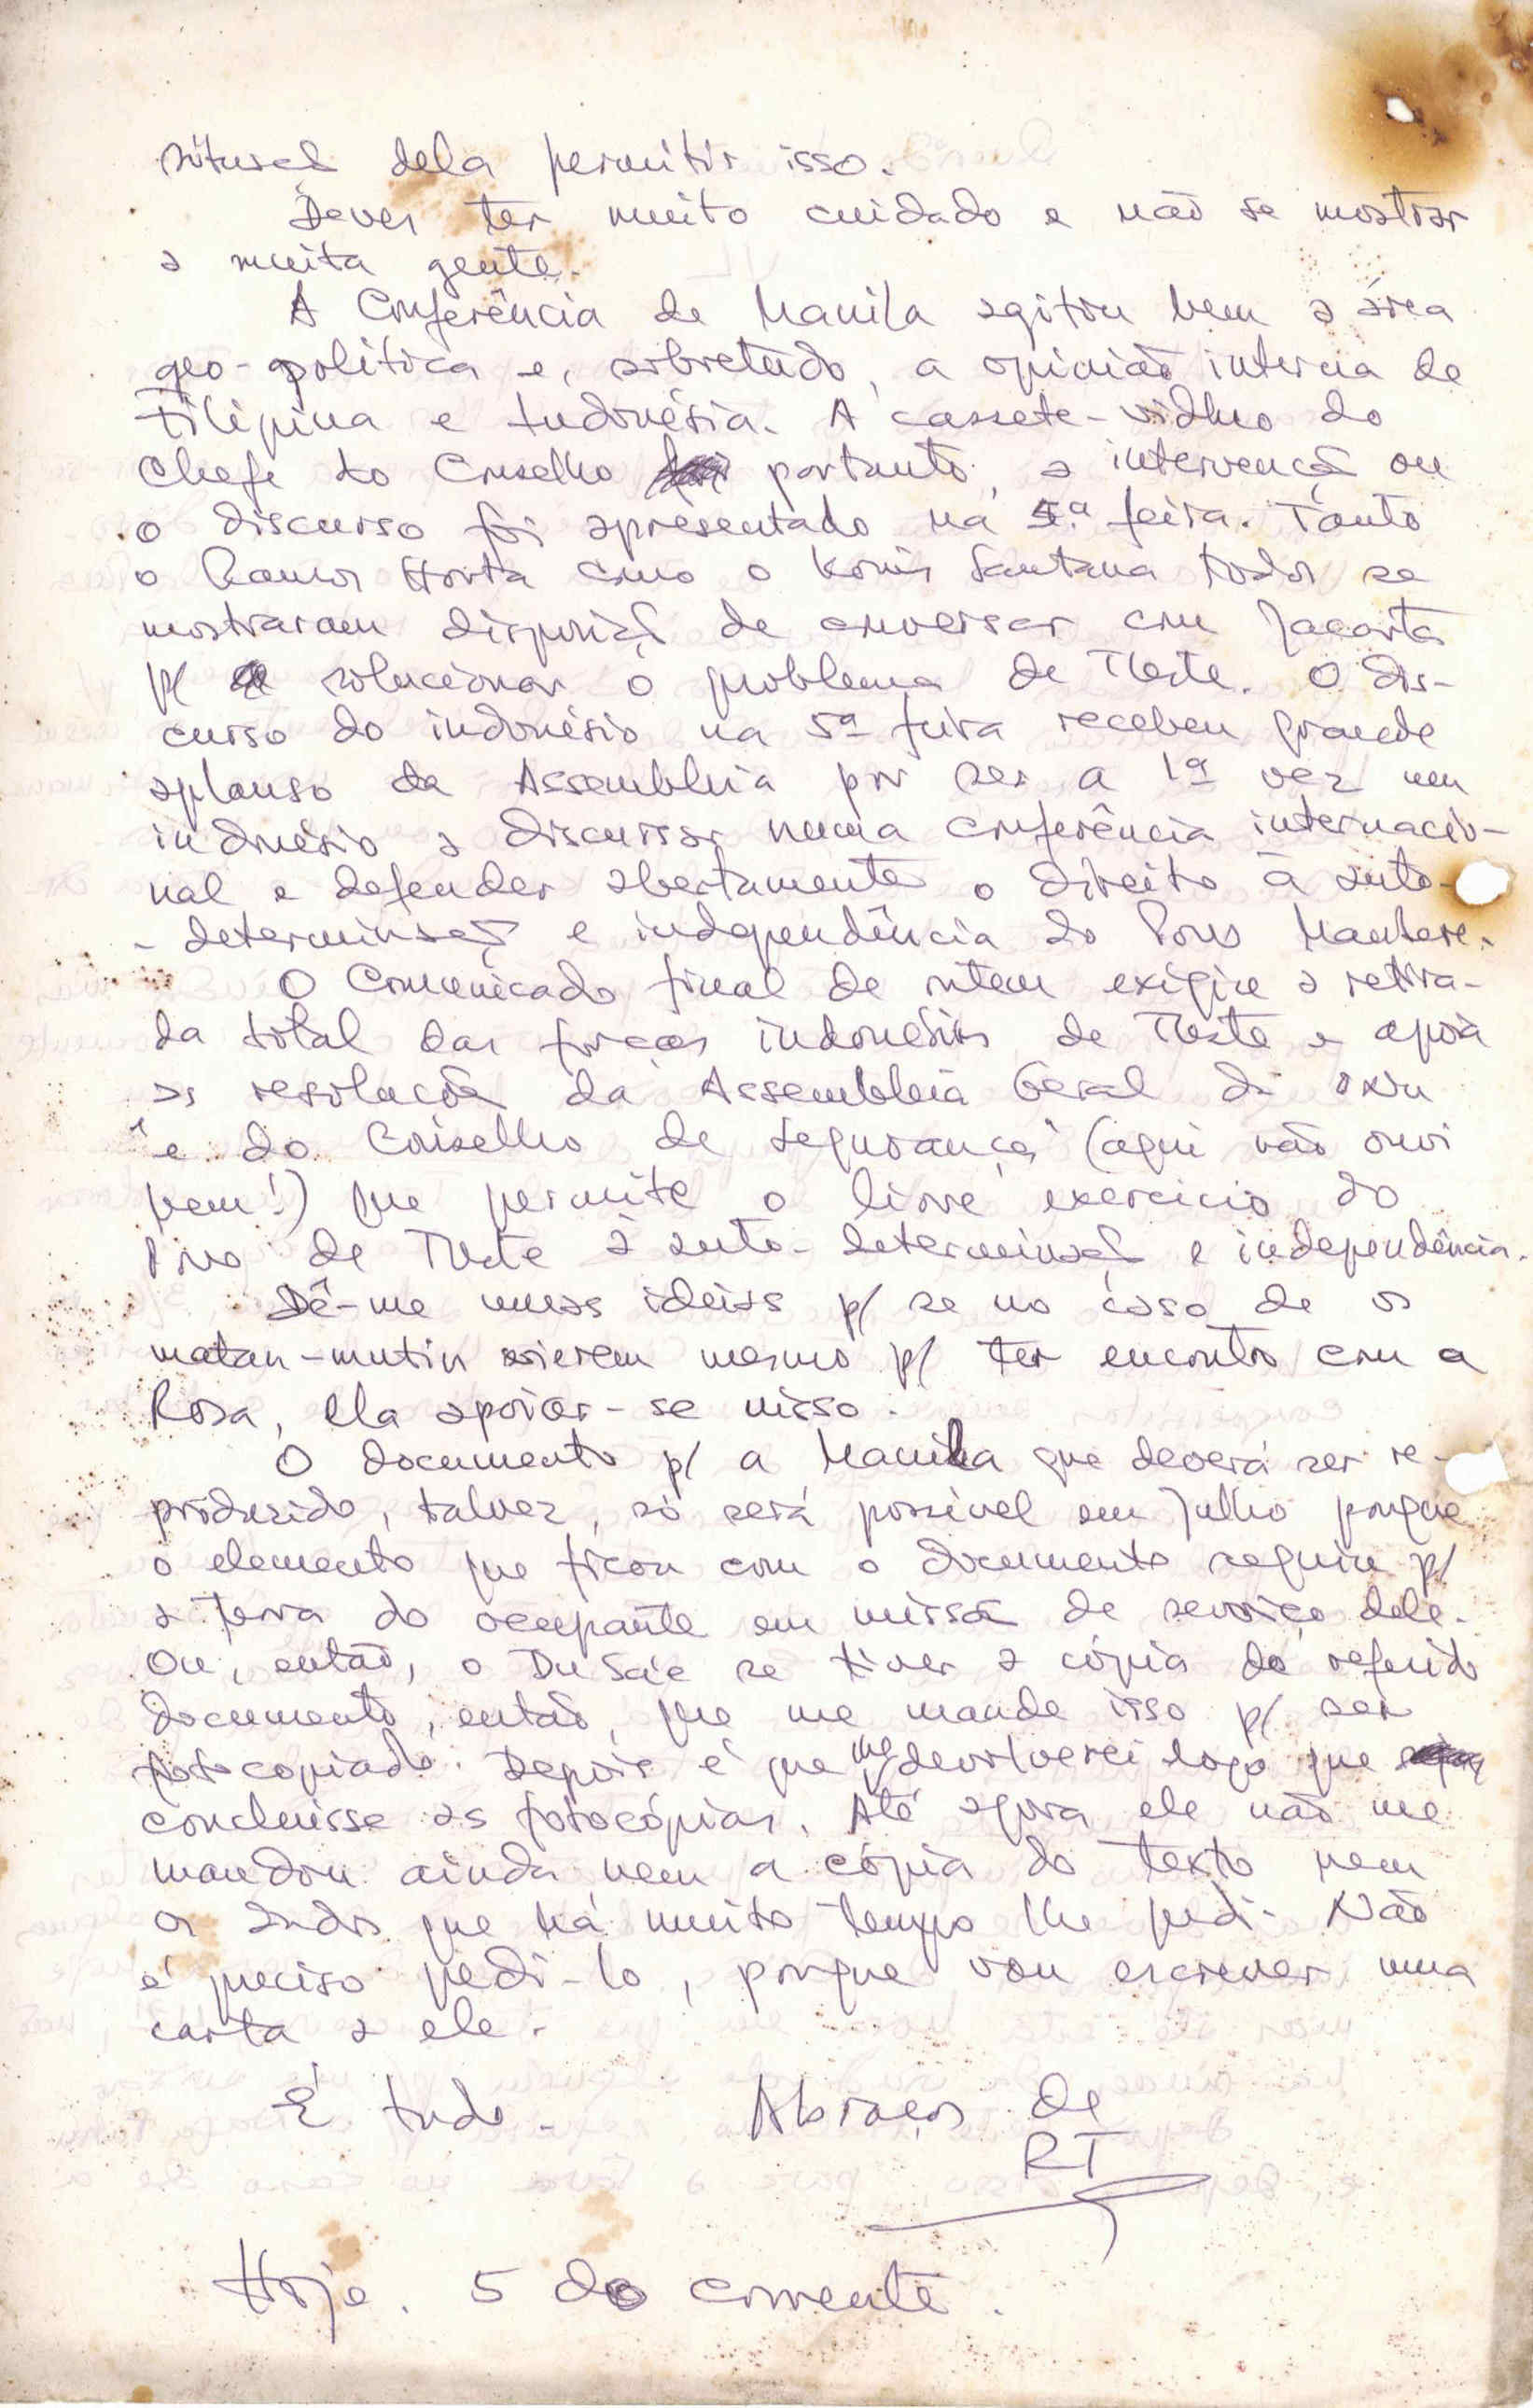 situação dela permitir isso.
Deves ter muito cuidado e não se mostrar
a muita gente.
A Conferência de Manila agitou bem a área
geo-política e, sobretudo, a opinião interna de
Filipina e Indonésia. A cassete-vídheo do
Chefe do Conselho portanto, a intervenção ou
o discurso foi apresentado na 5.ª feira. Tanto
o Ramos Horta como o Konis Santana todos se
mostraram disposição de conversar com Jacarta
p/ solucionar o problema de TLeste. O dis-
curso do indonésio na 5ª feira recebeu grande
aplauso da Assembleia por ser a 1ª vez um
indonésio a discursar numa conferência internacio-
nal e defender abertamente o direito à auto-
-determinação e independência do Povo Maubere.
O Comunicado final de ontem exigiu a retira-
da total das forças indonésias de TLeste e apoia
as resoluções da Assembleia Geral da ONU
"e do Conselho de Segurança" (aqui não ouvi
bem!) que permite o livre exercício do
Povo de TLeste à auto-determinação e independência.
Dê-me umas ideias p/ se no caso de os
matan-mutin vierem mesmo p/ ter encontro com a
Rosa, ela apoiar-se nisso.
O documento p/ a Manila que deverá ser re-
produzido, talvez, só será possível em Julho porque
o elemento que ficou com o documento seguiu p/
a terra do ocupante em missão de serviço dele.
Ou, então, o DuSa'e se tiver a cópia do referido
documento, então, que me mande isso p/ ser
fotocopiado. Depois é que lhe devolverei logo que
concluisse as fotocópias. Até agora ele não me
mandou ainda nem a cópia do texto nem
os que há muito tempo lhe pedi. Não
é preciso pedi-lo, porque vou escrever uma
carta a ele.
É tudo. Abraços de
RT
Hoje. 5 do corrente.